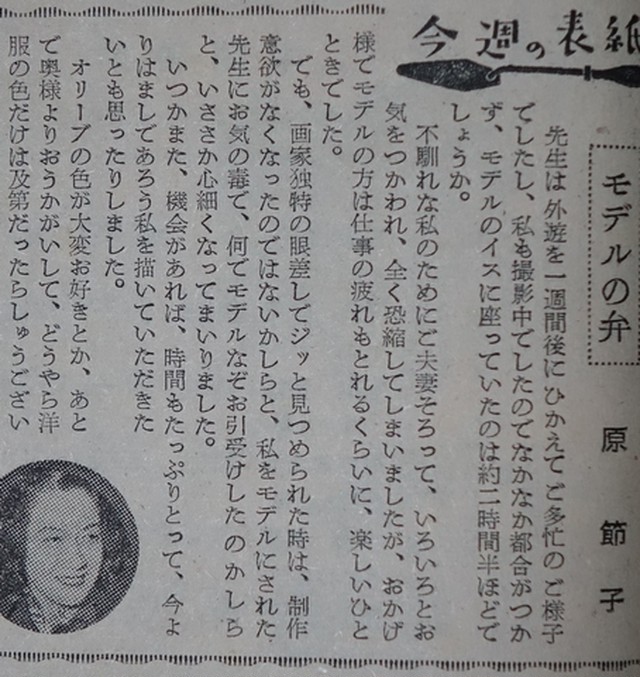 今週の表紙
モデルの弁
原節子
先生は外遊を一週間後にひかえてご多忙のご様子
でしたし、私も撮影中でしたのでなかなか都合がつか
ず、モデルのイスに座っていたのは約二時間半ほどで
しょうか。
不馴れな私のためにご夫妻そろって、いろいろとお
気をつかわれ、全く恐縮してしまいましたが、おかげ
様でモデルの方は仕事の疲れもとれるくらいに、楽しいひと
ときでした。
でも、画家独特の眼差しでジッと見つめられた時は、制作
意欲がなくなったのではないかしらと、私をモデルにされた
先生にお気の毒で、何でモデルなぞお引受けしたのかしら
と、いささか心細くなってまいりました。
いつかまた、機会があれば、時間もたっぷりとって、今よ
りはましであろう私を描いていただきた
いとも思ったりしました。
オリーブの色が大変お好きとか、あと
で奥様よりおうかがいして、どうやら洋
服の色だけは及第だったらしゅうござい